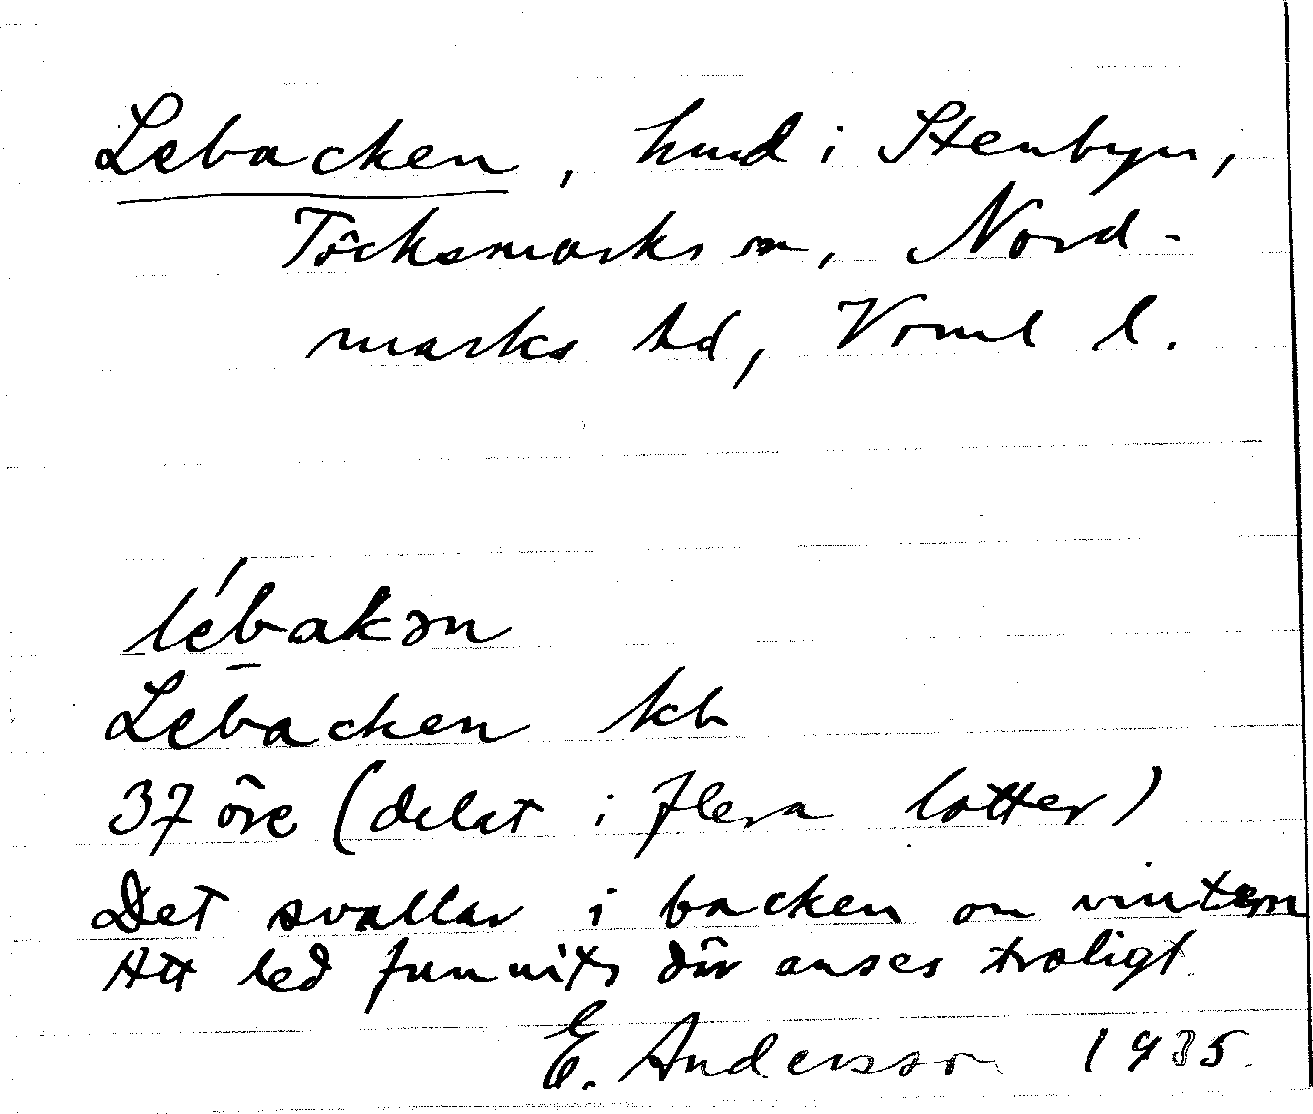 Lebacken, hmd i Stenbyn,
Töcksmarks sn, Nord-
marks hd, Värml l.
lébakən
Lebacken kb
37 öre (delat i flera lotter)
Det svallar i backen om vintern
Att led funnits där anses troligt
E. Andersson 1935.